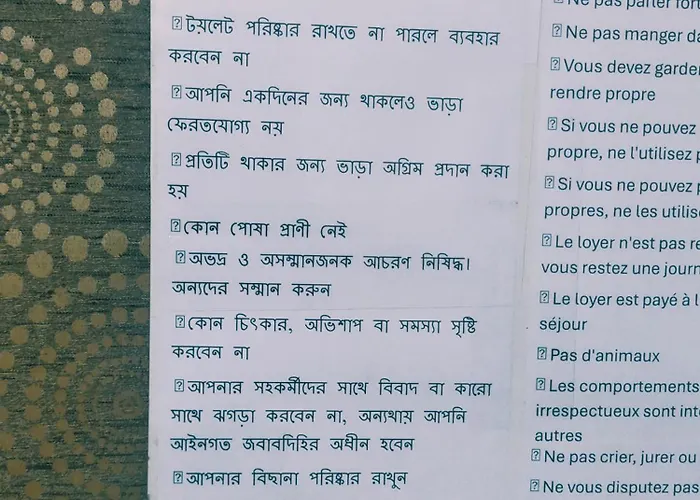 ⍰টয়লেট পরিষ্কার রাখতে না পারলে ব্যবহার
করবেন না
⍰আপনি একদিনের জন্য থাকলেও ভাড়া
ফেরতযোগ্য নয়
⍰প্রতিটি থাকার জন্য ভাড়া অগ্রিম প্রদান করা
হয়
⍰কোন পোষা প্রাণী নেই
⍰অভদ্র ও অসম্মানজনক আচরণ নিষিদ্ধ।
অন্যদের সম্মান করুন
⍰কোন চিৎকার, অভিশাপ বা সমস্যা সৃষ্টি
করবেন না
⍰আপনার সহকর্মীদের সাথে বিবাদ বা কারো
সাথে ঝগড়া করবেন না, অন্যথায় আপনি
আইনগত জবাবদিহির অধীন হবেন
⍰আপনার বিছানা পরিষ্কার রাখুন
⍰Ne pas parler
⍰Ne pas manger
⍰Vous devez
rendre propre
⍰Si vous ne pouvez
propre, ne l'utilisez
⍰Si vous ne pouvez
propres, ne les
⍰Le loyer n'est pas
vous restez une
⍰Le loyer est payé à
séjour
⍰Pas d'animaux
⍰Les comportements
irrespectueux sont
autres
⍰Ne pas crier, jurer ou
⍰Ne vous disputez pas